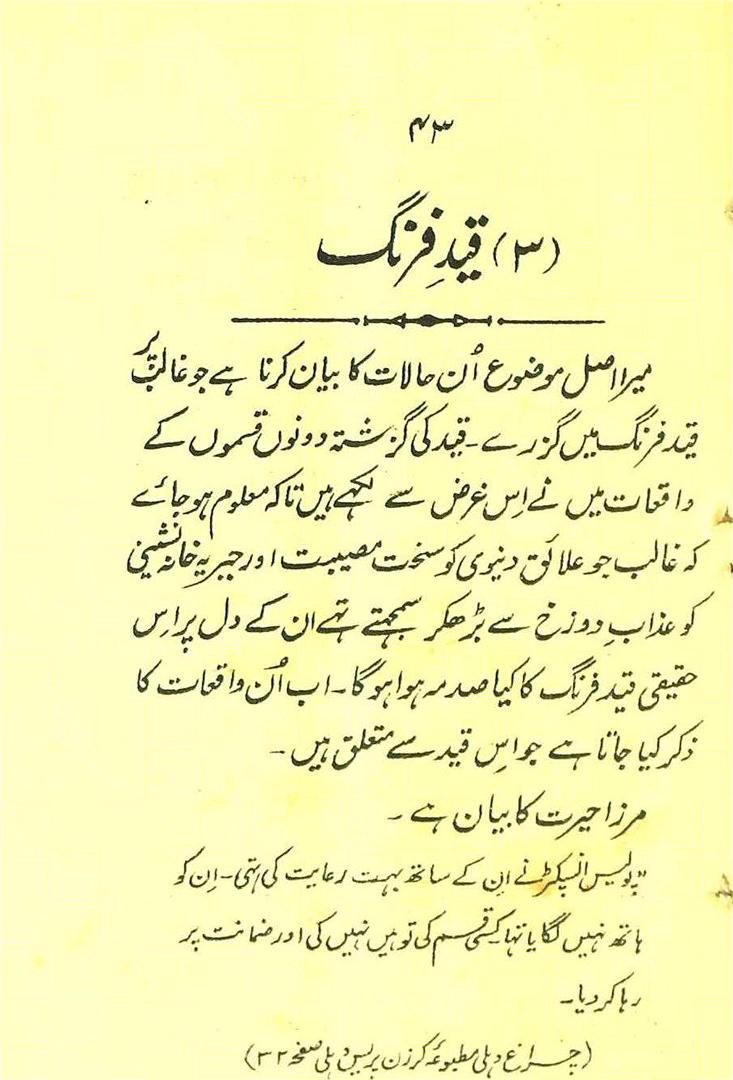 ۴۳
(۳) قیدِ فرنگ
میرا اصل موضوع اُن حالات کا بیان کرنا ہے جو غالبؔ پر
قید فرنگ میں گزرے۔ قید کی گزشتہ دونوں قسموں کے
واقعات میں نے اِس غرض سے لکہے ہیں تاکہ معلوم ہو جائے
کہ غالب جو علائق دنیوی کو سخت مصیبت اور جبریہ خانہ نشینی
کو عذابِ دوزخ سے بڑھکر سمجہتے تہے ان کے دل پر اِس
حقیقی قید فرنگ کا کیا صدمہ ہوا ہوگا۔ اب اُن واقعات کا
ذکر کیا جاتا ہے جو اِس قید سے متعلق ہیں۔
مرزا حیرت کا بیان ہے۔
"پولیس انسپکٹر نے اِن کے ساتھ بہت رعایت کی تہی۔ اِن کو
ہاتھ نہیں لگایا تہا کِسی قسم کی توہین نہیں کی اور ضمانت پر
رہا کر دیا۔
(چراغ دہلی مطبوعہ کرزن پریس دہلی صفحہ ۳۲)